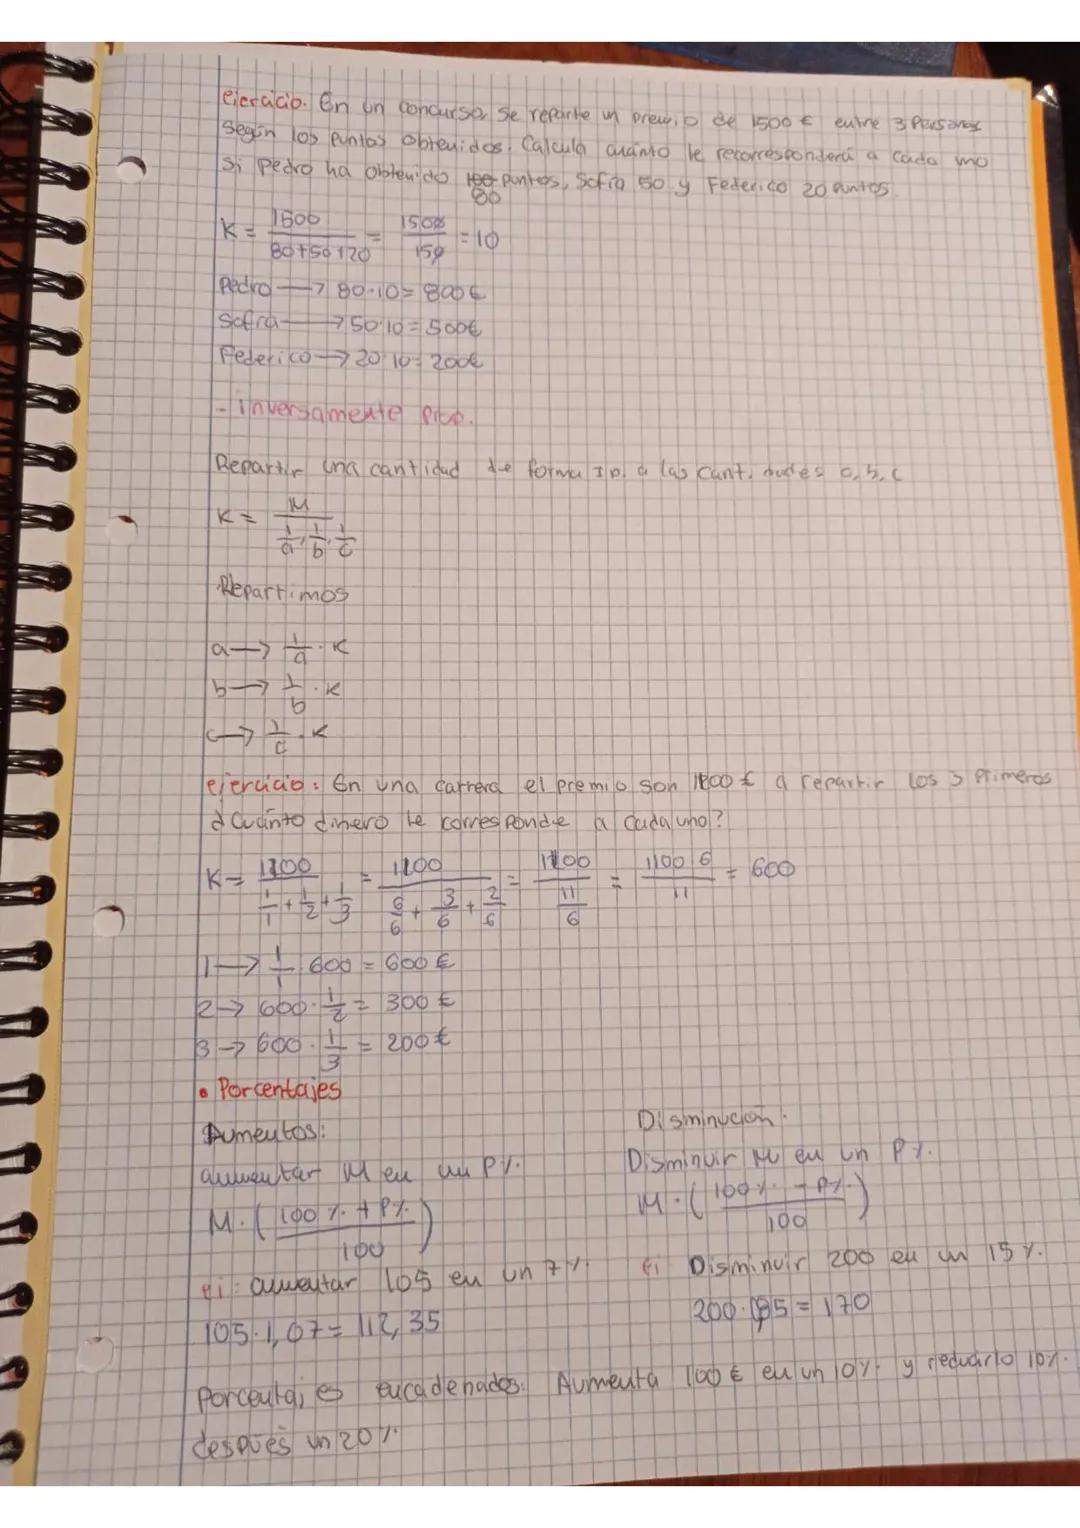 ejercicio. En un concurso, se reparte un premio de 1500 € entre 3 Personas
Según los puntos obtenidos. Calcula cuánto le recorresponderá a cada uno
si Pedro ha obtenido 100 puntos, Sofía 50 y Federico 20 puntos.
80
K = 1500 / 80+50+20 = 1500 / 150 = 10
Pedro → 80·10 = 800€
Sofía → 50·10 = 500€
Federico → 20·10 = 200€
- inversamente prop.
Repartir una cantidad de forma I.p. a las cantidades a, b, c
K = M / 1/a, 1/b, 1/c
Repartimos
a → 1/a · K
b → 1/b · K
c → 1/c · K
ejercicio: En una carrera el premio son 1100 € a repartir los 3 primeros
¿Cuánto dinero le corresponde a cada uno?
K = 1100 / 1/1 + 1/2 + 1/3 = 1100 / 6/6 + 3/6 + 2/6 = 1100 / 11/6 = 1100·6 / 11 = 600
1 → 1/1 · 600 = 600 €
2 → 600 · 1/2 = 300 €
3 → 600 · 1/3 = 200 €
• Porcentajes
Aumentos:
aumentar M en un P%.
M · ( 100% + P% / 100 )
ej: aumentar 105 en un 7%.
105·1,07 = 112,35
Disminución:
Disminuir M en un P%.
M · ( 100% - P% / 100 )
ej Disminuir 200 en un 15%.
200·0,85 = 170
Porcentajes encadenados. Aumenta 100 € en un 10% y reducirlo 10%.
después un 20%.